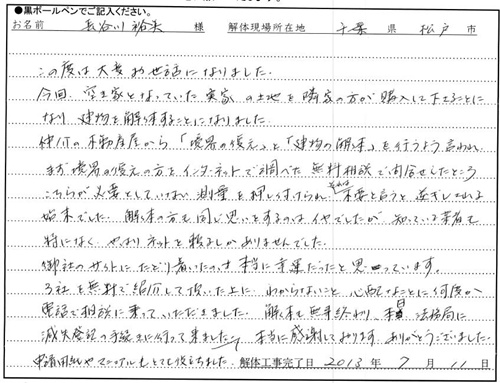 ●黒ボールペンでご記入ください。
お名前 長谷川 裕美 様 解体現場所在地 千葉 県 松戸 市
この度は大変お世話になりました。
今回、空き家となっていた実家の土地を隣家の方が購入して下さることに
なり、建物を解体することになりました。
仲介の不動産屋から「境界の復元」と「建物の解体」を行うよう言われ、
まず境界の復元の方をインターネットで調べた無料相談で問合せしたところ
こちらが必要としていない測量を押しつけられ、それは不要と言うと
始末でした。解体の方も同じ思いをするのはイヤでしたが、知っている業者も
特になく、やはりネットを頼るしかありませんでした。
御社のサイトにたどり着いたのは本当に幸運だったと思っています。
3社を無料で紹介して頂いた上に、わからないこと、心配なことに何度か
電話で相談に乗っていただきました。解体も無事終わり、本日、法務局に
滅失登記の手続きに行って来ました。本当に感謝しております。ありがとうございました。
申請用紙やマニュアルもとても役立ちました。解体工事完了日 2013 年 7 月 11 日